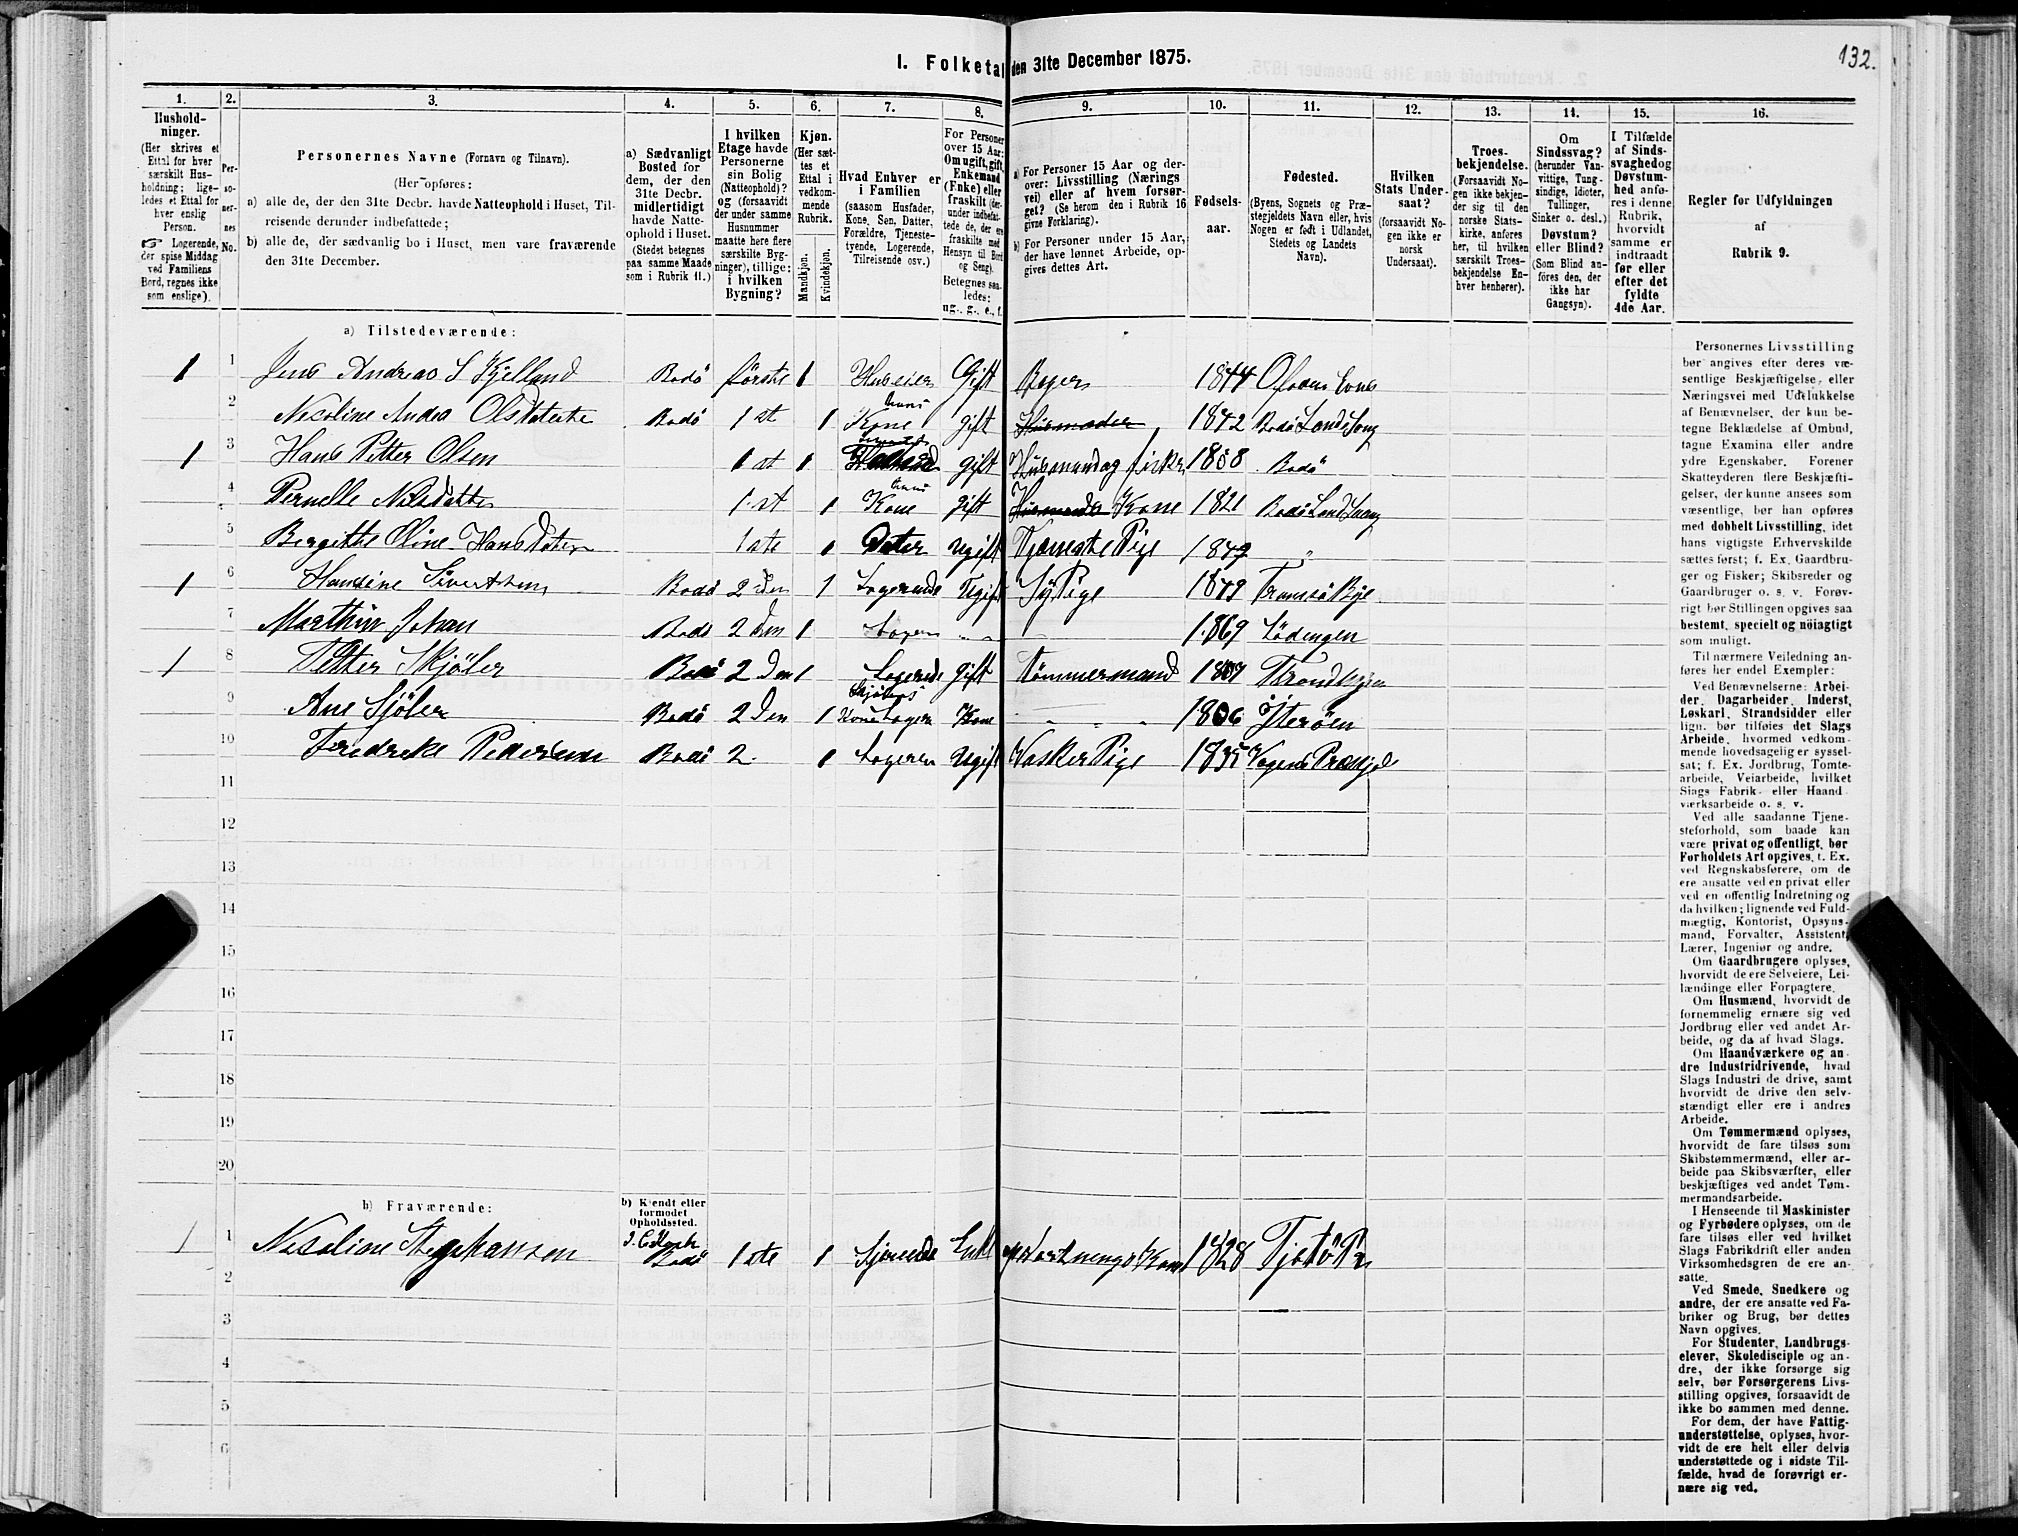 132.
I. Folketal den 31te December 1875.
1. 2. 3. 4. 5. 6. 7. 8. 9. 10. 11. 12. 13. 14. 15. 16.
Hushold-
ninger.
(Her skrives et
Ettal for hver
særskilt Hus-
holdning; lige-
ledes et Ettal for
hver enslig
Person.
☞ Logerende,
der spise Middag
ved Familiens
Bord, regnes ikke
som enslige).
Per-
so-
ner-
nes
No.
Personernes Navne (Fornavn og Tilnavn).
(Her opføres:
a) alle de, der den 31te Decbr. havde Natteophold i Huset, Til-
reisende derunder indbefattede;
b) alle de, der sædvanlig bo i Huset, men vare fraværende
den 31te December.
a) Sædvanligt
Bosted for
dem, der den
31te Decbr.
midlertidigt
havde Natte-
ophold i Huset.
(Stedet betegnes
paa samme Maade
som i Rubrik 11.)
I hvilken
Etage havde
Personerne
sin Bolig
(Natteophold)?
og (forsaavidt
der under samme
Husnummer
maatte høre flere
særskilte Byg-
ninger), tillige:
i hvilken
Bygning?
Kjøn.
(Her sæt-
tes et
Ettal i
vedkom-
mende
Rubrik.
Mandkjøn.
Kvindekjøn.
Hvad Enhver er
i Familien
(saasom Husfader,
Kone, Søn, Datter,
Forældre, Tjeneste-
tyende, Logerende,
Tilreisende osv.)
For Personer
over 15 Aar:
Om ugift, gift,
Enkemand
(Enke) eller
fraskilt (der-
under indbefat-
tede de, der ere
fraskilte med
Hensyn til Bord
og Seng).
Betegnes saa-
ledes:
ug., g., e., f.
a) For Personer 15 Aar og der-
over: Livsstilling (Nærings
vei) eller af hvem forsør-
get? (Se herom den i Rubrik 16
givne Forklaring).
b) For Personer under 15 Aar,
der have lønnet Arbeide, op-
gives dettes Art.
Fødsels-
aar.
Fødested.
(Byens, Sognets og Præ-
stegjeldets Navn eller, hvis
Nogen er født i Udlandet,
Stedets og Landets
Navn).
Hvilken
Stats Under-
saat?
(forsaavidt No-
gen ikke er
norsk
Undersaat).
Troes-
bekjendelse.
(Forsaavidt No-
gen ikke bekjen-
der sig til den
norske Stats-
kirke, anføres
her, til hvilken
særskilt Troes-
bekjendelse En-
hver henhører).
Om
Sindssvag?
(herunder Van-
vittige, Tung-
sindige, Idioter,
Tullinger,
Sinker o. desl.)
Døvstum?
eller Blind?
(Som Blind an-
føres den, der
ikke har
Gangsyn).
I Tilfælde
af Sinds-
svaghed og
Døvstum-
hed anfø-
res i denne
Rubrik,
hvorvidt
samme er
indtraadt
før eller
efter det
fyldte
4de Aar.
Regler for Udfyldningen
af
Rubrik 9.
a) Tilstedeværende:
1 1 Jens Andreas S Kjelland Bodö første 1 Huseier Gift Bager 1844 Ofoden Evnes
2 Nicoline Andea Olsdatter Bodö 1 st 1 Hans Kone gift Husmoder 1842 Bodö Lands Sogn
1 3 Hans Petter Olsen 1 st 1 gift Husmand og fisker 1808 Bodö
4 Pernelle Nilsdatter 1 st 1 Hans Kone gift Husmands Kone 1821 Bodö Land Sogn
5 Bergitte Oline Hansdatter 1 ste 1 Dater Ugift Tjeneste Pige 1849 "
1 6 Hansine Sivertsen Bodö 2 den 1 Logerende Ugift Sy Pige 1849 Tromsö Bye
7 Marthin Johan Bodö 2 den 1 Loger " " 1869 Lödingen
1 8 Petter Skjöler Bodö 2 den 1 Logerede gift Tömmermand 1809 Trondhjem
9 Ane Sjöler Bodö 2 den 1 Skjölers Kone Loger Kone " " " 1806 Yteröen
10 Fredreke Pedersen Bodö 2 1 Logeren Ugift Vasker Pige 1835 Vogens Præstgjel
11
12
13
14
15
16
17
18
19
20
b) Fraværende:
b) Kjendt eller
formodet
Opholdssted.
1 1 Nicoline Stephansen J. C. Koch Bodö 1 ste 1 Tjenende Enke Opvartnings Kone 1828 Tjötö Pr
2
3
4
5
6
Personernes Livsstilling
bør angives efter deres væ-
sentlige Beskjæftigelse, eller
Næringsvei med Udelukkelse
af Benævnelser, der kun be-
tegne Beklædelse af Ombud,
tagne Examina eller andre
ydre Egenskaber. Forener
Skatteyderen flere Beskjæfti-
gelser, der kunne ansees som
væsentlige, bør han opføres
med dobbelt Livsstilling, idet
hans vigtigste Erhvervskilde
sættes først; f. Ex. Gaardbru-
ger og Fisker; Skibsreder og
Gaardbruger o. s. v. Forøv-
rigt bør Stillingen opgives saa
bestemt, specielt og nöiagtigt
som muligt.
Til nærmere Veiledning an-
føres her endel Exempler:
Ved Benævnelserne: Arbei-
der, Dagarbeider, Inderst,
Løskarl, Strandsidder eller
lign. bør tilføies det Slags
Arbeide, hvormed vedkom-
mende hovedsagelig er syssel-
sat; f. Ex. Jordbrug, Tomte-
arbeide, Veiarbeide, hvilket
Slags Fabrik- eller Haand-
værksarbeide o. s. v.
Ved alle saadanne Tjene-
steforhold, som baade kan
være privat og offentligt, bør
Forholdets Art opgives, t. Ex.
ved Regnskabsførere, om de
ere ansatte ved en privat eller
ved en offentlig Indretning og
da hvilken; lignende ved Fuld-
mægtig, Kontorist, Opsyns-
mand, Forvalter, Assistent,
Lærer, Ingeniør og andre.
Om Gaardbrugere oplyses,
hvorvidt de ere Selveiere, Lei-
lændinge eller Forpagtere.
Om Husmænd, hvorvidt de
fornemmelig ernære sig ved
Jordbrug eller ved andet Ar-
beide, og da af hvad Slags.
Om Haandværkere og an-
dre Industridrivende, hvad
Slags Industri de drive, samt
hvorvidt de drive den selv-
stændigt eller ere i andres
Arbeide.
Om Tømmermænd oplyses,
hvorvidt de fare tilsøs som
Skibstømmermænd, eller ar-
beide paa Skibsværfter, eller
beskjæftiges ved andet Tøm-
mermandsarbeide.
I Henseende til Maskinister
og Fyrbødere oplyses, om de
fare tilsøs eller ved hvilket
Slags Fabrikdrift eller anden
Virksomhedsgren de ere an-
satte.
Ved Smede, Snedkere og
andre, der ere ansatte ved Fa-
briker og Brug, bør dettes
Navn opgives.
For Studenter, Landbrugs-
elever, Skoledisciple og an-
dre, der ikke forsørge sig
selv, bør Forsørgerens Livs-
stilling opgives, forsaavidt de
ikke bo sammen med denne.
For dem, der have Fattig-
understøttelse, oplyses, hvor-
vidt de ere helt eller delvis
understøttede og i sidste Til-
fælde, hvad de forøvrigt er-
nære sig ved.